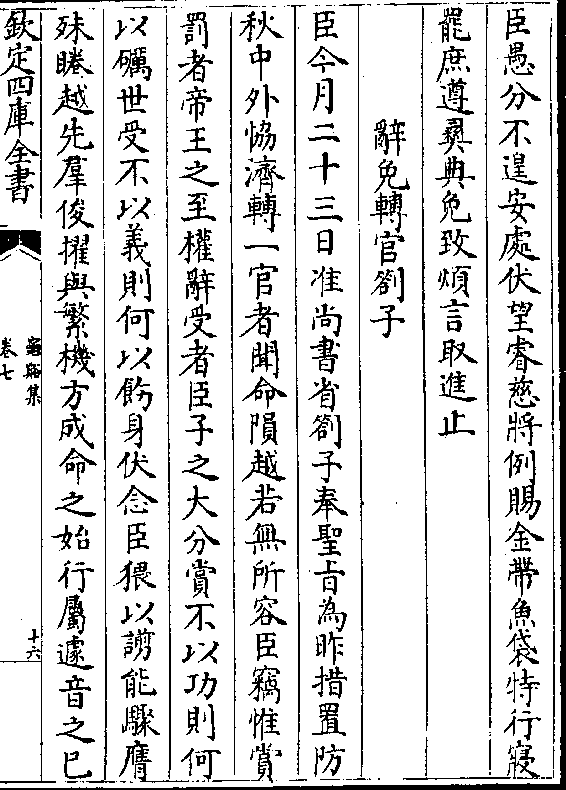 臣愚分不遑安處伏望睿慈將例賜金帶魚袋特行寢
罷庶遵彞典免致煩言取進止
辭免轉官劄子
臣今月二十三日准尚書省劄子奉聖旨為昨措置防
秋中外協濟轉一官者聞命隕越若無所容臣竊惟賞
罰者帝王之至權辭受者臣子之大分賞不以功則何
以礪世受不以義則何以飭身伏念臣猥以謭能驟膺
殊睠越先羣俊擢與繁機方成命之始行屬遽音之已
欽定四庫全書
龜谿集
卷七
十六